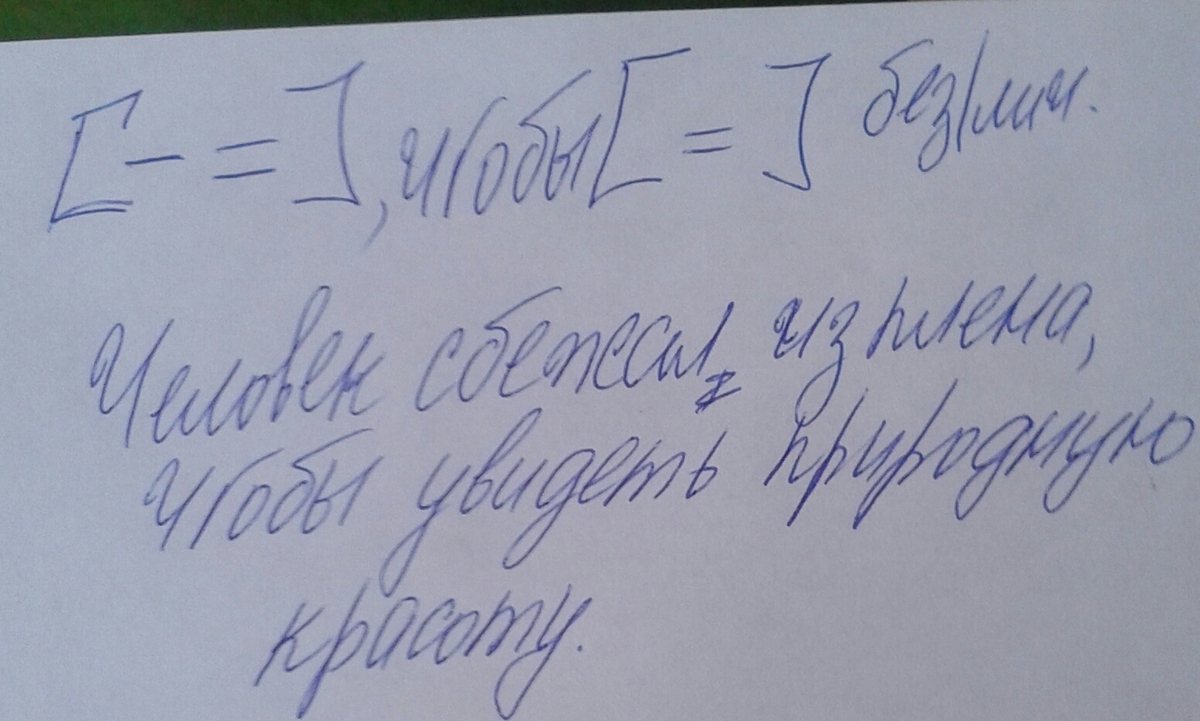 [— =], чтобы [ = ] без/лич.
Человек сбежал из плена,
чтобы увидеть природную
красоту.